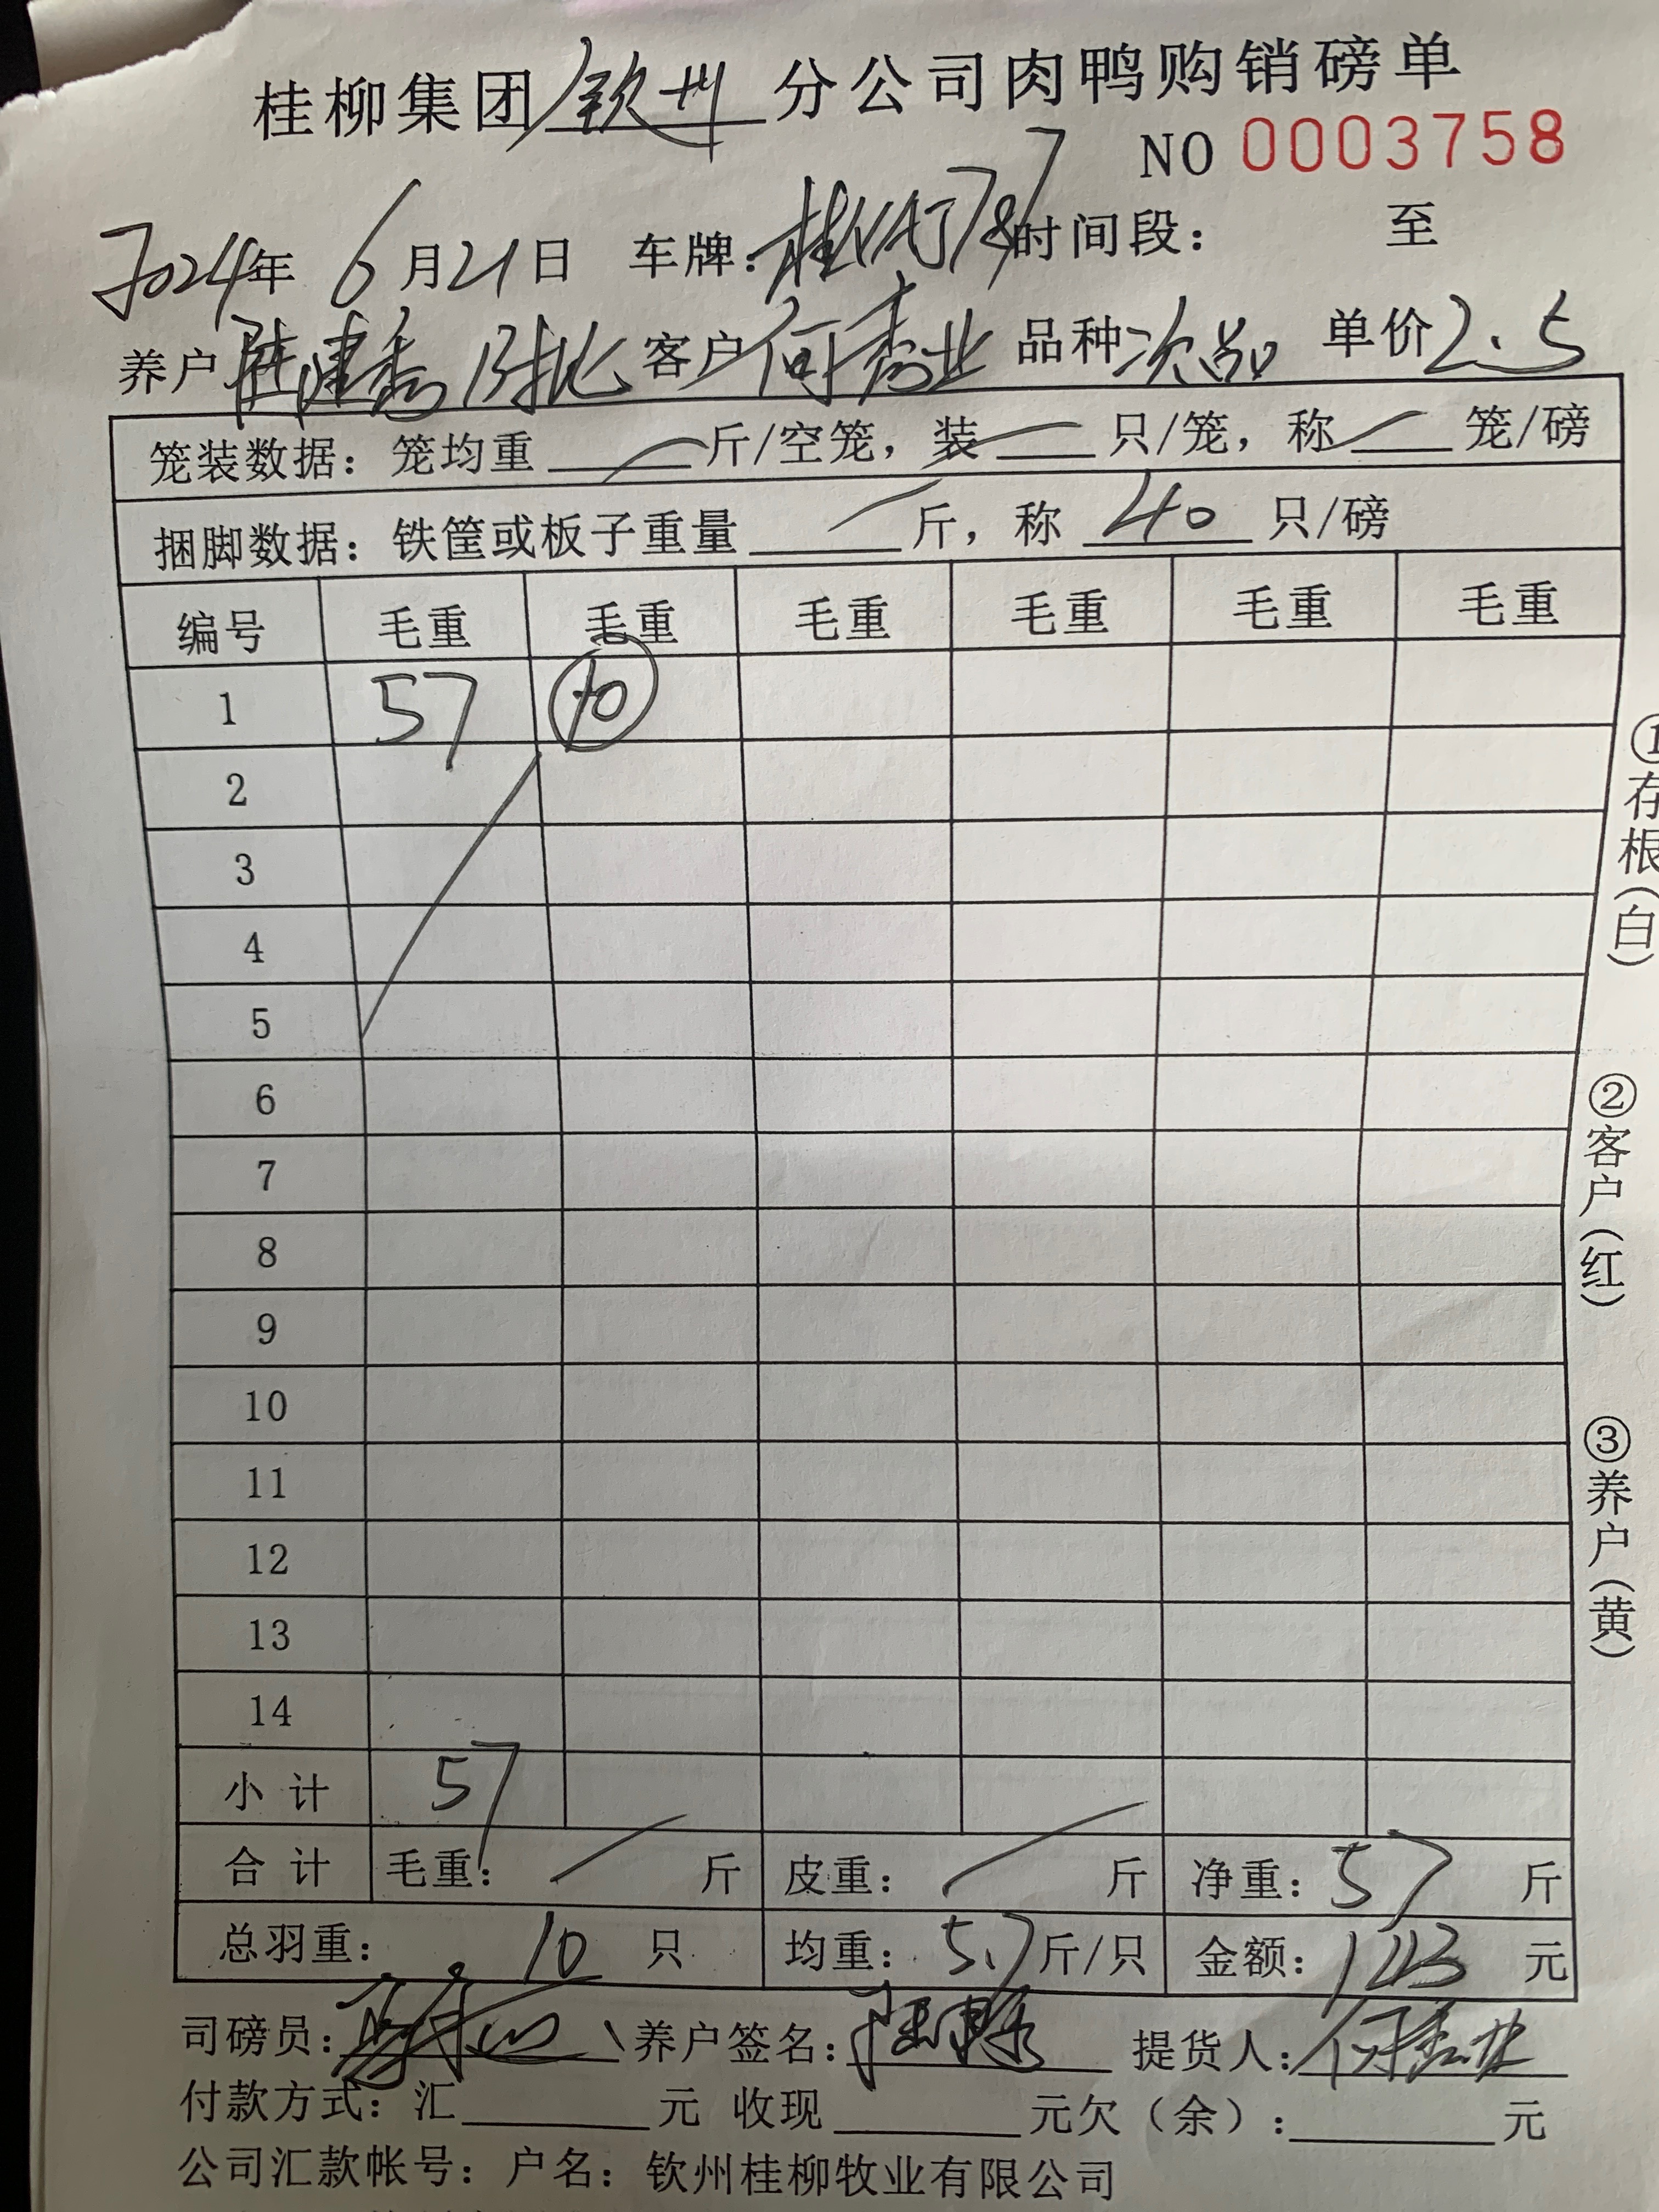 桂柳集团 钦州 分公司肉鸭购销磅单
NO 0003758
2024年 6月21日 车牌: 时间段: 至
养户 客户 何秀业 品种 次品 单价 2.5
笼装数据: 笼均重 斤/空笼, 装 只/笼, 称 笼/磅
捆脚数据: 铁筐或板子重量 斤, 称 40 只/磅
编号 毛重 毛重 毛重 毛重 毛重 毛重
1 57 10
2
3
4
5
6
7
8
9
10
11
12
13
14
小计 57
合计 毛重: 斤 皮重: 斤 净重: 57 斤
总羽重: 10 只 均重: 5.7 斤/只 金额: 143 元
司磅员: 养户签名: 提货人:
付款方式: 汇 元 收现 元欠(余): 元
公司汇款帐号: 户名: 钦州桂柳牧业有限公司
①存根(白)
②客户(红)
③养户(黄)